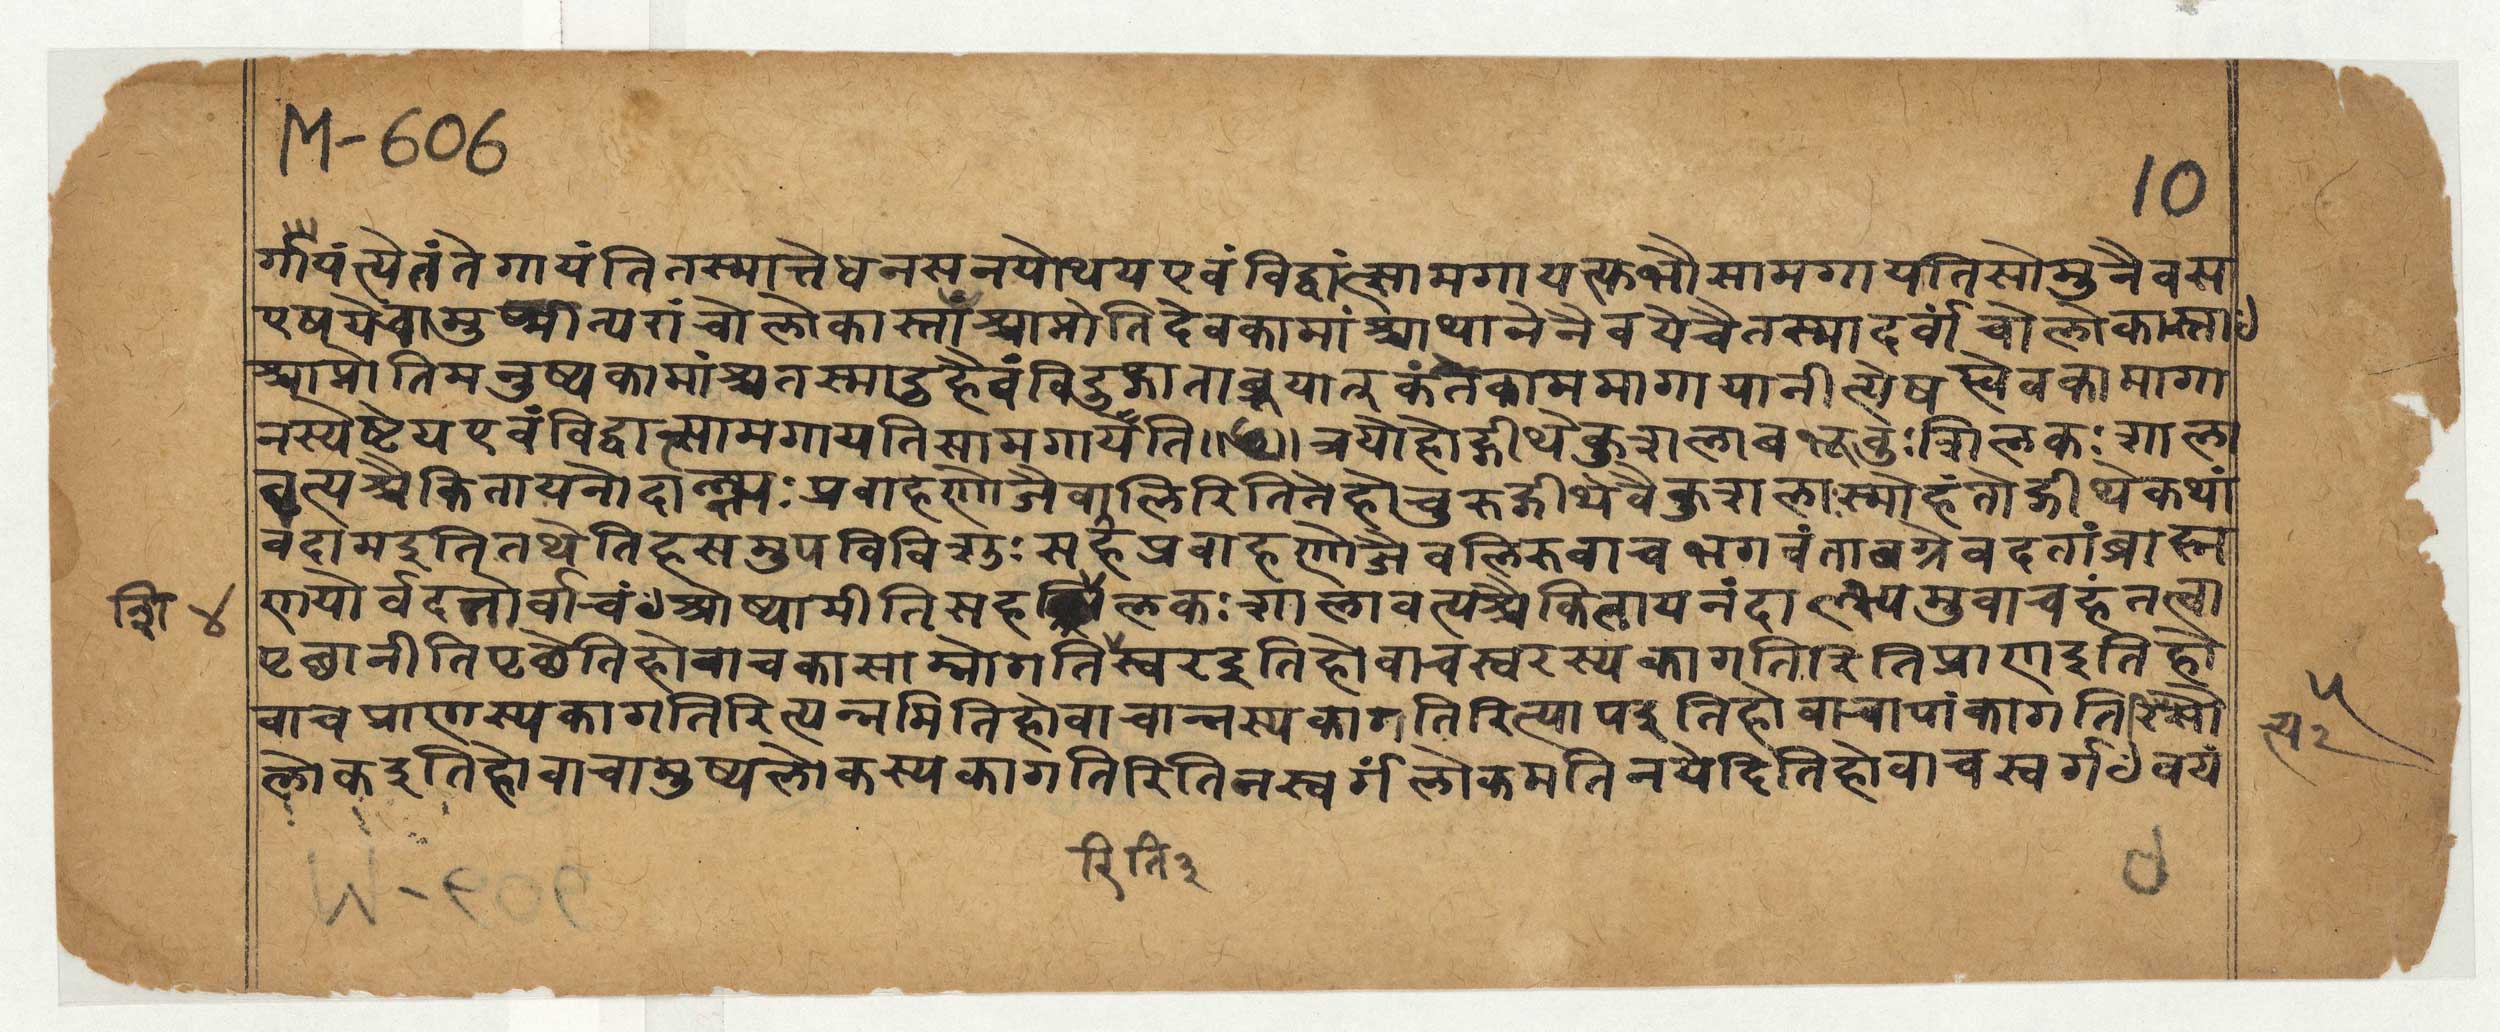 M-606
10
र्गायंत्येतंतेगायंतितस्मात्तेधनसनयोथयएवंविद्वांत्सामगायत्युभौसामगायतिसोमुनैवस
एषयेचामुष्मीत्परांचोलोकास्तांश्चाप्नोतिदेवकामांश्चाथानेनैवयेचैतस्मादर्वांचोलोकास्ता
श्चाप्नोतिमनुष्यकामांश्चतस्मादुहैवंविदुद्गाताब्रूयात्कंतेकाममागायानीत्येषह्येवकामागा
नस्येष्टेयएवंविद्वान्त्सामगायतिसामगायति॥७॥त्रयोहोद्गीथेकुशलाबभूवुःशिलकःशाला
वत्यश्चैकितायनोदाल्भ्यःप्रवाहणोजैवालिरितितेहोचुरुद्गीथेवैकुशलास्मोहंतोद्गीथेकथां
वदामइतितथेतिहसमुपविविशुःसहप्रवाहणोजैवलिरुवाचभगवंतावग्रेवदतांब्राह्म
णयोर्वदतोर्वाचंꣳश्रोष्यामीतिसहशिलकःशालावत्यश्चैकितायनंदाल्भ्यमुवाचहंतत्वा
पृछानीतिपृछेतिहोवाचकासाम्नोगतिस्वरइतिहोवाचस्वरस्यकागतिरितिप्राणइतिहो
वाचप्राणस्यकागतिरित्यन्नमितिहोवाचान्नस्यकागतिरित्यापइतिहोवाचापांकागतिरिसौ
लोकइतिहोवाचामुष्यलोकस्यकागतिरितिनस्वर्गंलोकमतिनयेदितिहोवाचस्वर्गꣳवयं
शि ४
त्य २
५
रिति ३